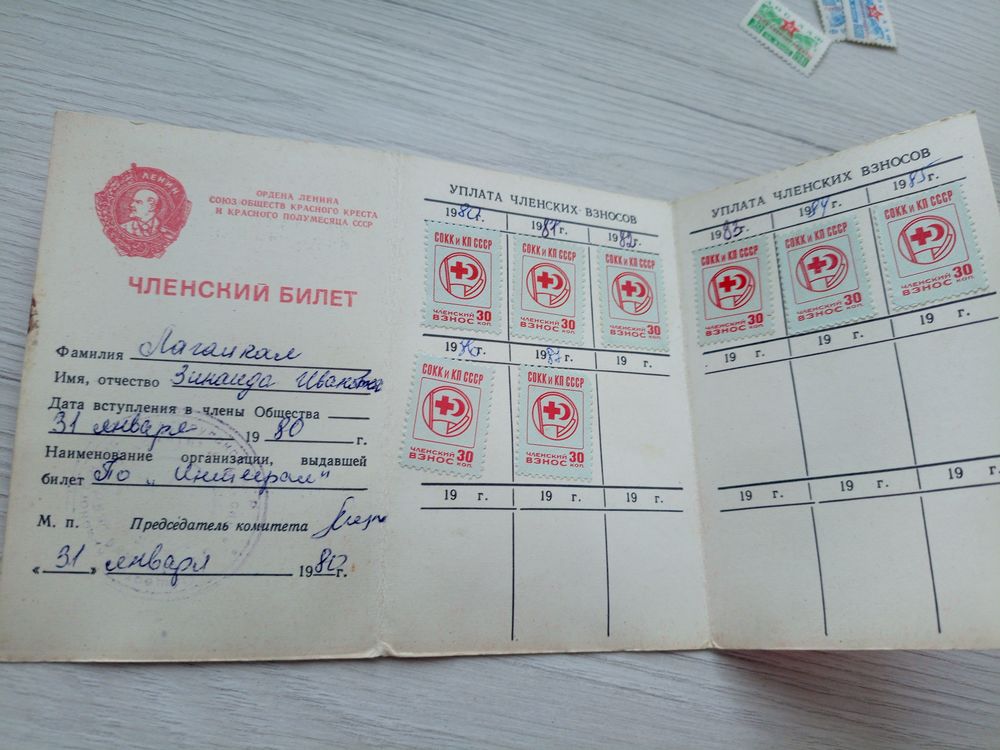 ЛЕНИН
ОРДЕНА ЛЕНИНА
СОЮЗ ОБЩЕСТВ КРАСНОГО КРЕСТА
И КРАСНОГО ПОЛУМЕСЯЦА СССР
ЧЛЕНСКИЙ БИЛЕТ
Фамилия
Имя, отчество Зинаида Ивановна
Дата вступления в члены Общества
31 января 1980 г.
Наименование организации, выдавшей
билет По „Интеграл"
М. п. Председатель комитета
«31» января 1980г.
УПЛАТА ЧЛЕНСКИХ ВЗНОСОВ
1980г. 1981г. 1982г.
СОКК и КП СССР СОКК и КП СССР СОКК и КП СССР
ЧЛЕНСКИЙ ВЗНОС 30 КОП. ЧЛЕНСКИЙ ВЗНОС 30 КОП. ЧЛЕНСКИЙ ВЗНОС 30 КОП.
1986г. 1987г. 19 г.
СОКК и КП СССР СОКК и КП СССР
ЧЛЕНСКИЙ ВЗНОС 30 КОП. ЧЛЕНСКИЙ ВЗНОС 30 КОП.
19 г. 19 г. 19 г.
УПЛАТА ЧЛЕНСКИХ ВЗНОСОВ
1983г. 1984г. 1985г.
СОКК и КП СССР СОКК и КП СССР СОКК и КП СССР
ЧЛЕНСКИЙ ВЗНОС 30 КОП. ЧЛЕНСКИЙ ВЗНОС 30 КОП. ЧЛЕНСКИЙ ВЗНОС 30 КОП.
19 г. 19 г. 19 г.
19 г. 19 г. 19 г.